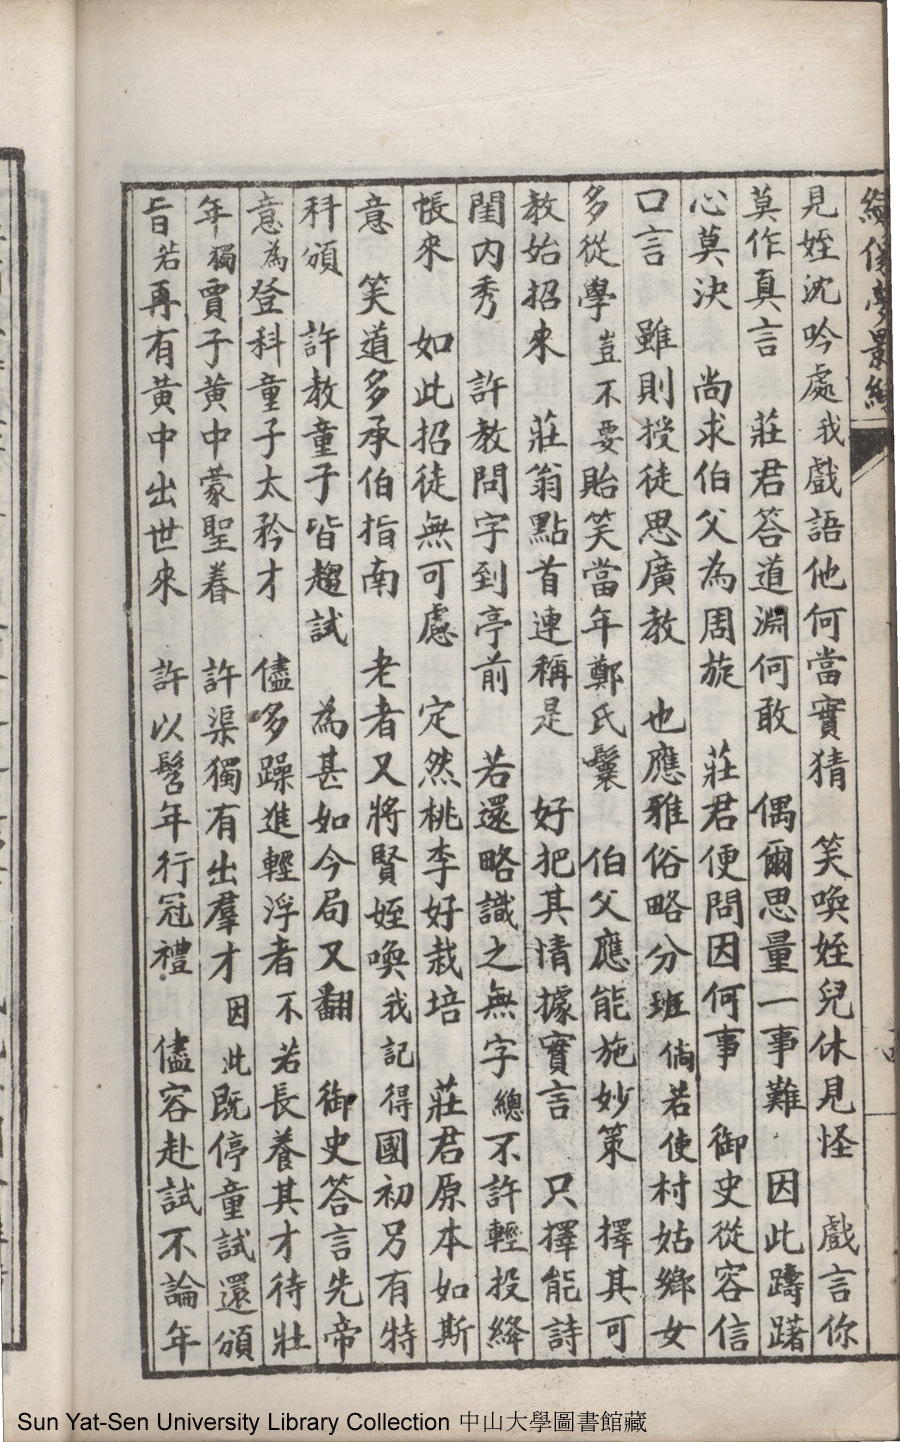 見姪沈吟處我戲語他何當實猜　笑喚姪兒休見怪　戲言你
莫作真言　莊君答道淵何敢　偶爾思量一事難　因此躊躇
心莫決　尚求伯父為周旋　莊君便問因何事　御史從容信
口言　雖則授徒思廣教　也應雅俗略分班倘若使村姑鄉女
多從學豈不要貽笑當年鄭氏鬟　伯父應能施妙策　擇其可
教始招來　莊翁點首連稱是　好把其情據實言　只擇能詩
閨內秀　許教問字到亭前　若還略識之無字總不許輕投絳
帳來　如此招徒無可慮　定然桃李好栽培　莊君原本如斯
意　笑道多承伯指南　老者又將賢姪喚我記得國初另有特
科頒　許教童子皆趨試　為甚如今局又翻　御史答言先帝
意為登科童子太矜才　儘多躁進輕浮者不若長養其才待壯
年獨賈子黃中蒙聖眷　許渠獨有出羣才因此既停童試還頒
旨若再有黃中出世來　許以髫年行冠禮　儘容赴試不論年
Sun Yat-Sen University Library Collection 中山大學圖書館藏